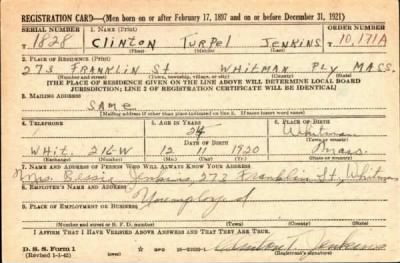 REGISTRATION CARD—(Men born on or after February 17, 1897 and on or before December 31, 1921)
SERIAL NUMBER 1. NAME (Print) ORDER NUMBER
1828 CLINTON TURPEL JENKINS 10,171A
(First) (Middle) (Last)
2. PLACE OF RESIDENCE (Print)
273 FRANKLIN ST WHITMAN PLY MASS.
(Number and street) (Town, township, village, or city) (County) (State)
[THE PLACE OF RESIDENCE GIVEN ON THE LINE ABOVE WILL DETERMINE LOCAL BOARD
JURISDICTION; LINE 2 OF REGISTRATION CERTIFICATE WILL BE IDENTICAL]
3. MAILING ADDRESS
SAME
[Mailing address if other than place indicated on line 2. If same insert word same]
4. TELEPHONE 5. AGE IN YEARS 6. PLACE OF BIRTH
21 Whitman
DATE OF BIRTH (Town or county)
WHIT. 216-W 12 11 1920 Mass.
(Exchange) (Number) (Mo.) (Day) (Yr.) (State or country)
7. NAME AND ADDRESS OF PERSON WHO WILL ALWAYS KNOW YOUR ADDRESS
Mrs. Bessie Jenkins 273 Franklin St, Whitman
8. EMPLOYER'S NAME AND ADDRESS
Unemployed
9. PLACE OF EMPLOYMENT OR BUSINESS
(Number and street or R. F. D. number) (Town) (County) (State)
I AFFIRM THAT I HAVE VERIFIED ABOVE ANSWERS AND THAT THEY ARE TRUE.
D. S. S. Form 1 GPO
(Revised 1-1-42) Clinton T. Jenkins
(Registrant's signature)